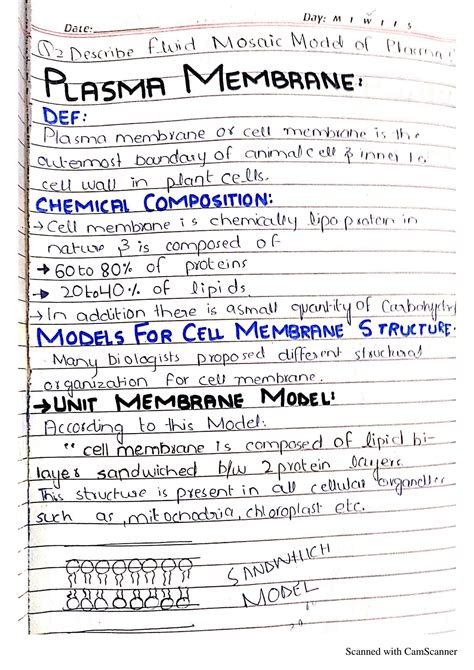 Date: Day: M T W T F S
Q2 Describe fluid Mosaic Model of Plasma
PLASMA MEMBRANE:
DEF:
Plasma membrane or cell membrane is the
outermost boundary of animal cell & inner to
cell wall in plant cells.
CHEMICAL COMPOSITION:
→ Cell membrane is chemically lipoprotein in
nature & is composed of
→ 60 to 80% of proteins
→ 20 to 40% of lipids
→ In addition there is a small quantity of Carbohydr
MODELS FOR CELL MEMBRANE STRUCTURE:
Many biologists proposed different structural
organization for cell membrane.
→ UNIT MEMBRANE MODEL:
According to this Model:
"cell membrane is composed of lipid bi-
layer sandwiched b/w 2 protein layers
This structure is present in all cellular organelles
such as, mitochodria, chloroplast etc.
SANDWHICH
MODEL
Scanned with CamScanner